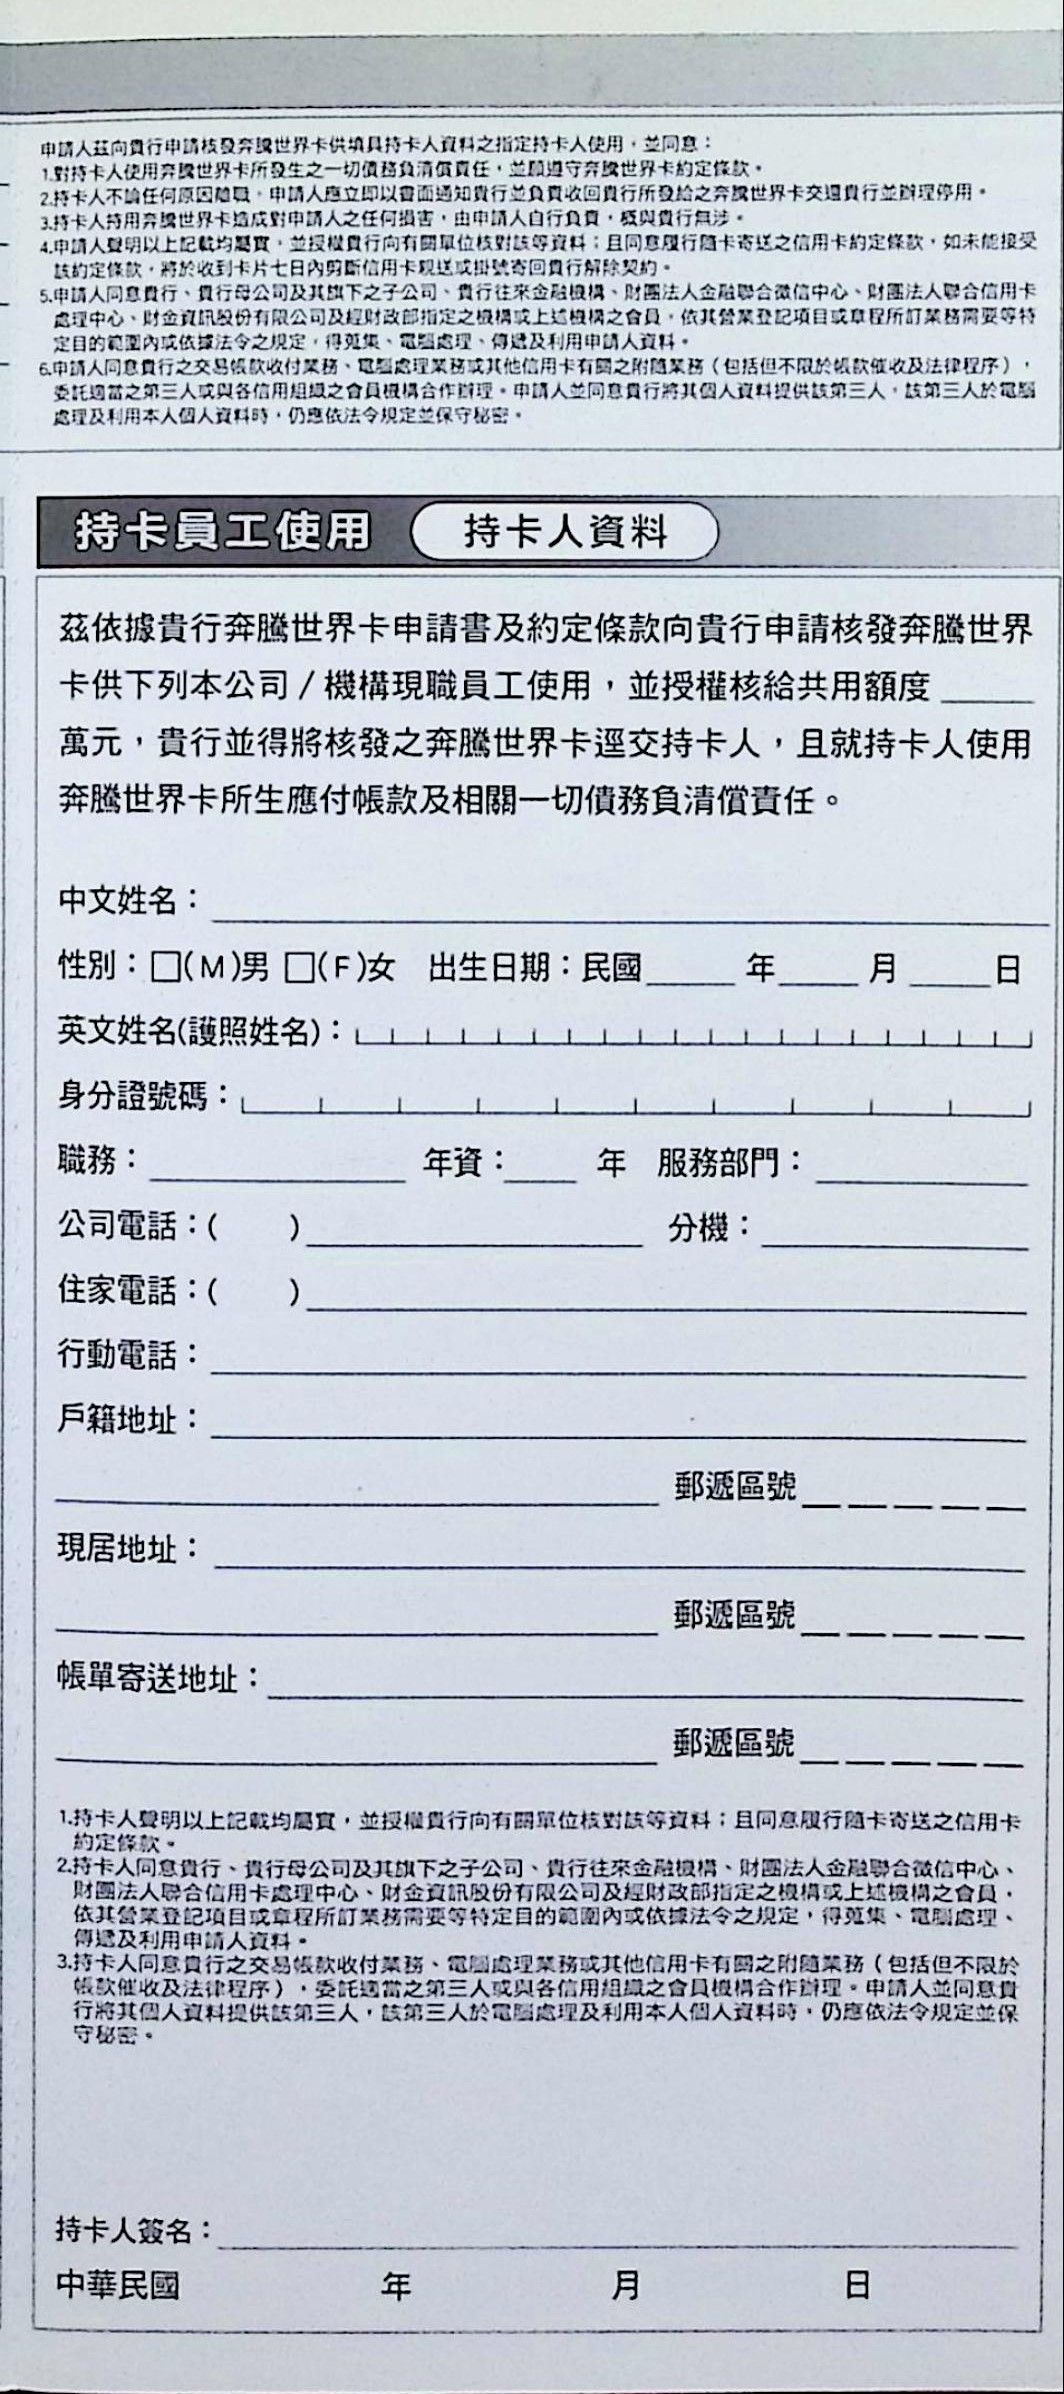 申請人茲向貴行申請核發奔騰世界卡供填具持卡人資料之指定持卡人使用，並同意：
1.對持卡人使用奔騰世界卡所發生之一切債務負清償責任，並願遵守奔騰世界卡約定條款。
2.持卡人不論任何原因離職，申請人應立即以書面通知貴行並負責收回貴行所發給之奔騰世界卡交還貴行並辦理停用。
3.持卡人持用奔騰世界卡造成對申請人之任何損害，由申請人自行負責，概與貴行無涉。
4.申請人聲明以上記載均屬實，並授權貴行向有關單位核對該等資料；且同意履行隨卡寄送之信用卡約定條款，如未能接受
該約定條款，將於收到卡片七日內剪斷信用卡親送或掛號寄回貴行解除契約。
5.申請人同意貴行、貴行母公司及其旗下之子公司、貴行往來金融機構、財團法人金融聯合徵信中心、財團法人聯合信用卡
處理中心、財金資訊股份有限公司及經財政部指定之機構或上述機構之會員，依其營業登記項目或章程所訂業務需要等特
定目的範圍內或依據法令之規定，得蒐集、電腦處理、傳遞及利用申請人資料。
6.申請人同意貴行之交易帳款收付業務、電腦處理業務或其他信用卡有關之附隨業務（包括但不限於帳款催收及法律程序），
委託適當之第三人或與各信用組織之會員機構合作辦理。申請人並同意貴行將其個人資料提供該第三人，該第三人於電腦
處理及利用本人個人資料時，仍應依法令規定並保守秘密。
持卡員工使用 持卡人資料
茲依據貴行奔騰世界卡申請書及約定條款向貴行申請核發奔騰世界
卡供下列本公司／機構現職員工使用，並授權核給共用額度______
萬元，貴行並得將核發之奔騰世界卡逕交持卡人，且就持卡人使用
奔騰世界卡所生應付帳款及相關一切債務負清償責任。
中文姓名：
性別：□(M)男 □(F)女 出生日期：民國_____年_____月_____日
英文姓名(護照姓名)：
身分證號碼：
職務： 年資：____ 年 服務部門：
公司電話：( ) 分機：
住家電話：( )
行動電話：
戶籍地址：
郵遞區號
現居地址：
郵遞區號
帳單寄送地址：
郵遞區號
1.持卡人聲明以上記載均屬實，並授權貴行向有關單位核對該等資料；且同意履行隨卡寄送之信用卡
約定條款。
2.持卡人同意貴行、貴行母公司及其旗下之子公司、貴行往來金融機構、財團法人金融聯合徵信中心、
財團法人聯合信用卡處理中心、財金資訊股份有限公司及經財政部指定之機構或上述機構之會員，
依其營業登記項目或章程所訂業務需要等特定目的範圍內或依據法令之規定，得蒐集、電腦處理、
傳遞及利用申請人資料。
3.持卡人同意貴行之交易帳款收付業務、電腦處理業務或其他信用卡有關之附隨業務（包括但不限於
帳款催收及法律程序），委託適當之第三人或與各信用組織之會員機構合作辦理。申請人並同意貴
行將其個人資料提供該第三人，該第三人於電腦處理及利用本人個人資料時，仍應依法令規定並保
守秘密。
持卡人簽名：
中華民國 年 月 日